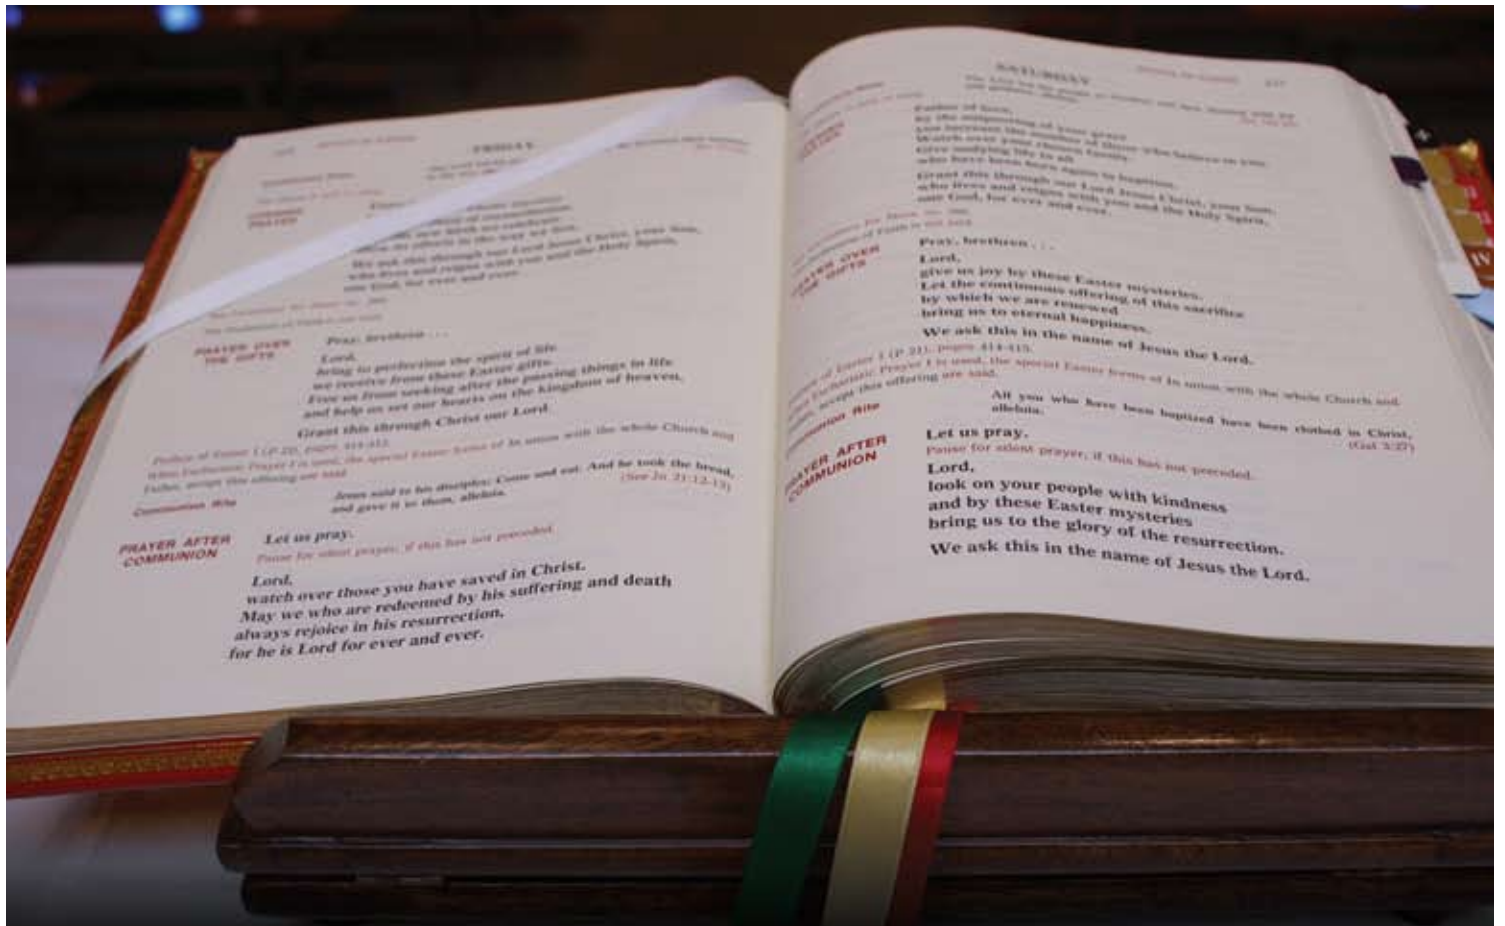 FRIDAY
OPENING
PRAYER
new birth we celebrate
show its effects in the way we live.
We ask this through our Lord Jesus Christ, your Son,
who lives and reigns with you and the Holy Spirit,
one God, for ever and ever.
PRAYER OVER
THE GIFTS
Pray, brethren . . .
Lord,
bring to perfection the spirit of life
we receive from these Easter gifts.
Free us from seeking after the passing things in life
and help us set our hearts on the kingdom of heaven.
Grant this through Christ our Lord.
Preface of Easter I (P 21), pages 414-415.
When Eucharistic Prayer I is used, the special Easter forms of In union with the whole Church and
Father, accept this offering are said.
Communion Rite
Jesus said to his disciples: Come and eat. And he took the bread,
and gave it to them, alleluia.
(See Jn 21:12-13)
PRAYER AFTER
COMMUNION
Let us pray.
Pause for silent prayer, if this has not preceded.
Lord,
watch over those you have saved in Christ.
May we who are redeemed by his suffering and death
always rejoice in his resurrection,
for he is Lord for ever and ever.
SATURDAY
Father of love,
by the outpouring of your grace
you increase the number of those who believe in you.
Watch over your chosen family.
Give undying life to all
who have been born again in baptism.
Grant this through our Lord Jesus Christ, your Son,
who lives and reigns with you and the Holy Spirit,
one God, for ever and ever.
PRAYER OVER
THE GIFTS
Pray, brethren . . .
Lord,
give us joy by these Easter mysteries.
Let the continuous offering of this sacrifice
by which we are renewed
bring us to eternal happiness.
We ask this in the name of Jesus the Lord.
of Easter I (P 21), pages 414-415.
Eucharistic Prayer I is used, the special Easter forms of In union with the whole Church and
accept this offering are said.
Communion Rite
All you who have been baptized have been clothed in Christ,
alleluia.
(Gal 3:27)
PRAYER AFTER
COMMUNION
Let us pray.
Pause for silent prayer, if this has not preceded.
Lord,
look on your people with kindness
and by these Easter mysteries
bring us to the glory of the resurrection.
We ask this in the name of Jesus the Lord.
IV